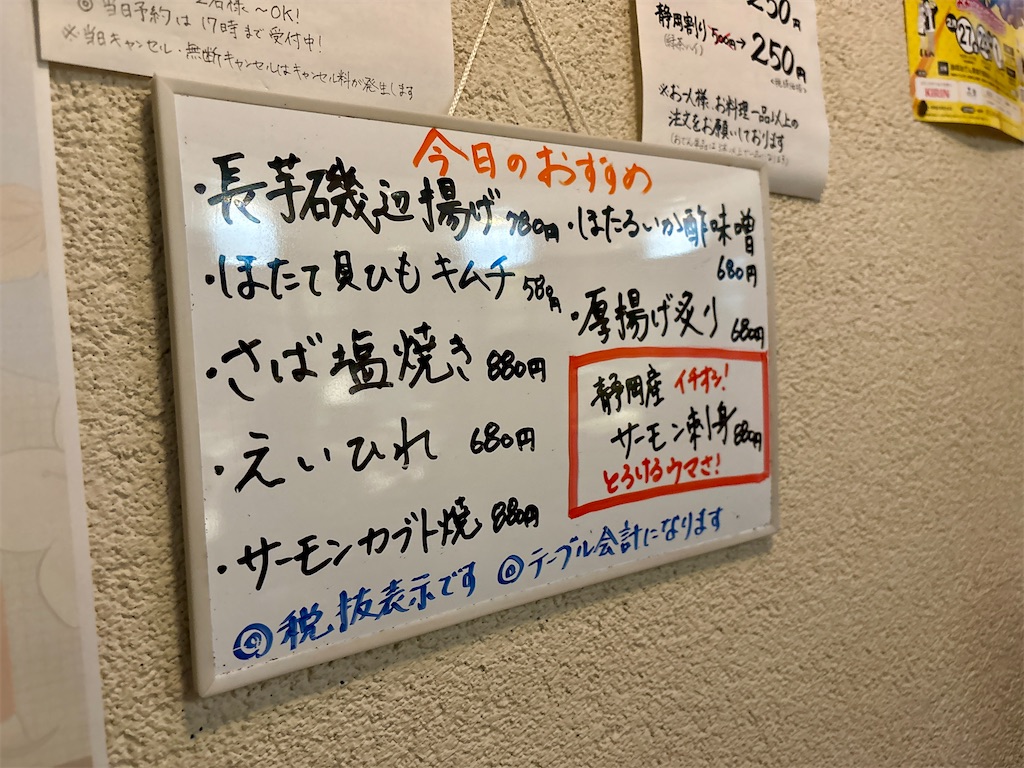 ◎当日予約は17時まで受付中!
※当日キャンセル・無断キャンセルはキャンセル料が発生します
静岡割り 500円→250円
(緑茶ハイ)
※お一人様、お料理一品以上の
注文をお願いしております
KIRIN
今日のおすすめ
・長芋磯辺揚げ 780円
・ほたて貝ひもキムチ 580円
・さば塩焼き 880円
・えいひれ 680円
・サーモンカブト焼 880円
・ほたるいか酢味噌
680円
・厚揚げ炙り 680円
静岡産 イチオシ!
サーモン刺身 880円
とろけるウマさ!
◎税抜表示です ◎テーブル会計になります